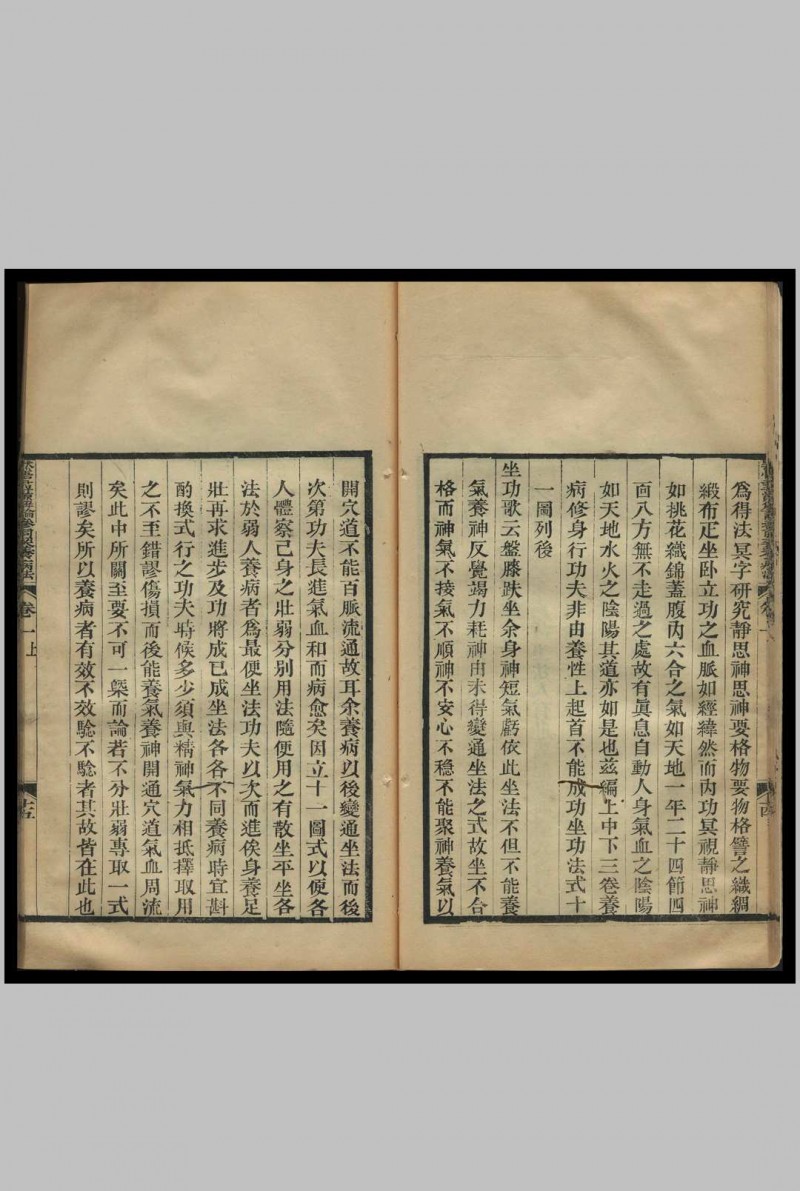 為得法冥字研究靜思神思神要格物要物格譬之織綢
緞布疋坐卧立功之血脈如經緯然而內功冥視靜思神
如挑花織錦蓋腹內六合之氣如天地一年二十四節四
面八方無不走過之處故有眞息自動人身氣血之陰陽
如天地水火之陰陽其道亦如是也茲編上中下三卷養
病修身行功夫非由養性上起首不能成功坐功法式十
一圖列後
坐功歌云盤膝趺坐余身神短氣虧依此坐法不但不能養
氣養神反覺竭力耗神由未得變通坐法之式故坐不合
格而神氣不接氣不順神不安心不穩不能聚神養氣以
十四
開穴道不能百脈流通故耳余養病以後變通坐法而後
次第功夫長進氣血和而病愈矣因立十一圖式以便各
人體察己身之壯弱分別用法隨便用之有散坐平坐各
法於弱人養病者為最便坐法功夫以次而進俟身養足
壯再求進步及功將成已成坐法各各不同養病時宜斟
酌換式行之功夫時候多少須與精神氣力相抵擇取用
之不至錯謬傷損而後能養氣養神開通穴道氣血周流
矣此中所關至要不可一槩而論若不分壯弱專取一式
則謬矣所以養病者有效不效驗不驗者其故皆在此也
卷一上
十五